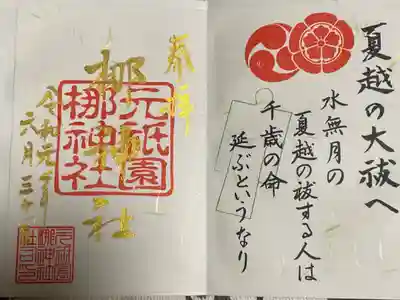 夏越の大祓へ
水無月の
夏越の祓する人は
千歳の命
延ぶというなり
奉拝
梛神社
元祇園
梛神社
令和元年
六月三十日